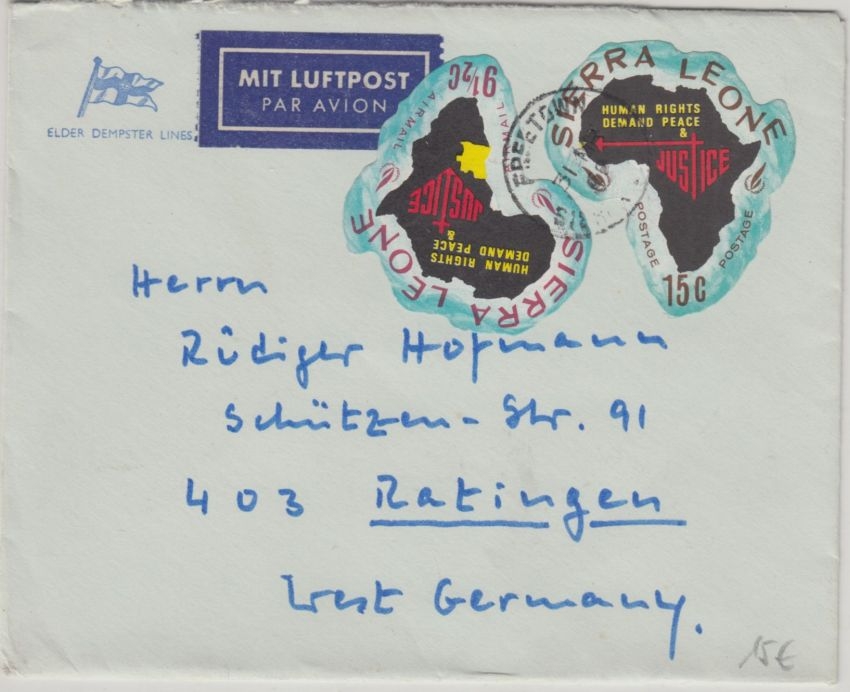 ELDER DEMPSTER LINES
MIT LUFTPOST
PAR AVION
9½C
AIRMAIL
AIRMAIL
JUSTICE
&
HUMAN RIGHTS
DEMAND PEACE
SIERRA LEONE
SIERRA LEONE
HUMAN RIGHTS
DEMAND PEACE
&
JUSTICE
POSTAGE
POSTAGE
15C
FREETOWN
31
Herrn
Rüdiger Hofmann
Schützen-Str. 91
403 Ratingen
West Germany.
15€